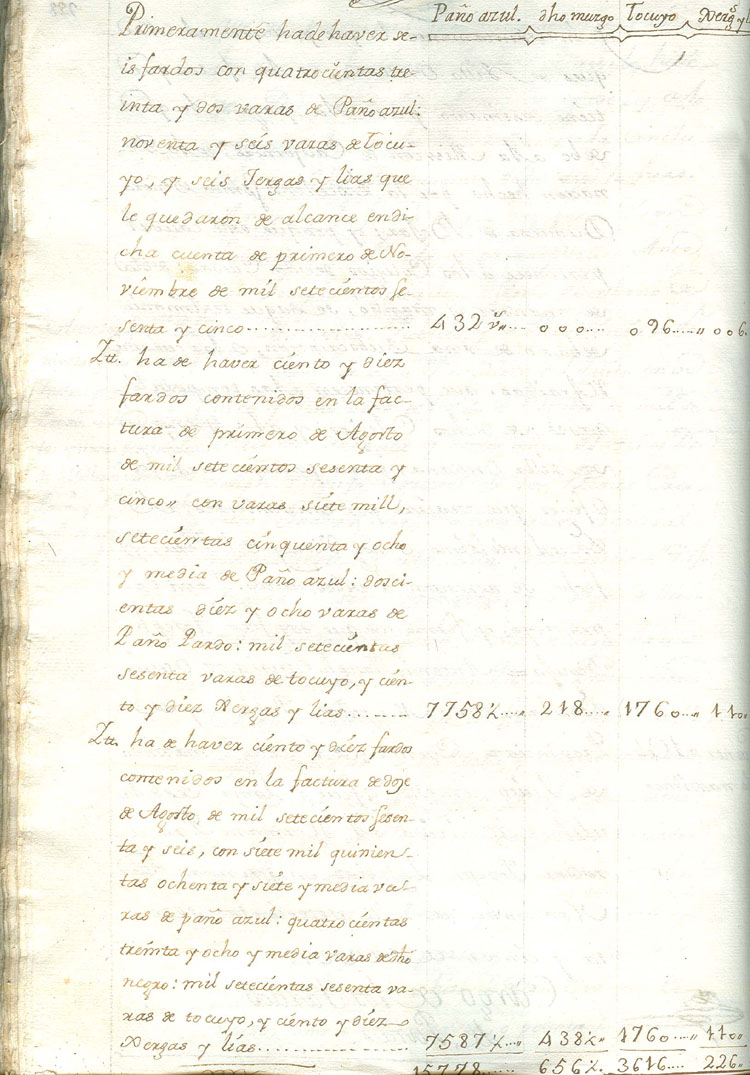 Paño azul. dho murgo Tocuyo Xergs y l
Primeramente ha de haver se-
is fardos con quatrocientas tre-
inta y dos varas de Paño azul:
noventa y seis varas de Tocu-
yo, y seis Jergas y lias que
le quedaron de alcance en di-
cha cuenta de primero de No-
viembre de mil setecientos se-
senta y cinco 432 vs 000 096 006.
Itt. ha de haver ciento y diez
fardos contenidos en la fac-
tura de primero de Agosto
de mil setecientos sesenta y
cinco con varas siete mill,
setecientas cinquenta y ocho
y media de Paño azul: dosci-
entas diez y ocho varas de
Paño Pardo: mil setecientas
sesenta varas de tocuyo, y cien-
to y diez Xergas y lias 7758½ 218 1760 110
Itt. ha de haver ciento y diez fardos
contenidos en la factura de doze
de Agosto de mil setecientos sesen-
ta y seis, con siete mil quinien-
tas ochenta y siete y media va-
ras de paño azul: quatrocientas
treinta y ocho y media varas de dho
negro: mil setecientas sesenta va-
ras de tocuyo, y ciento y diez
Xergas y lias 7587½ 438½ 1760 110
15778 656½ 3616 226